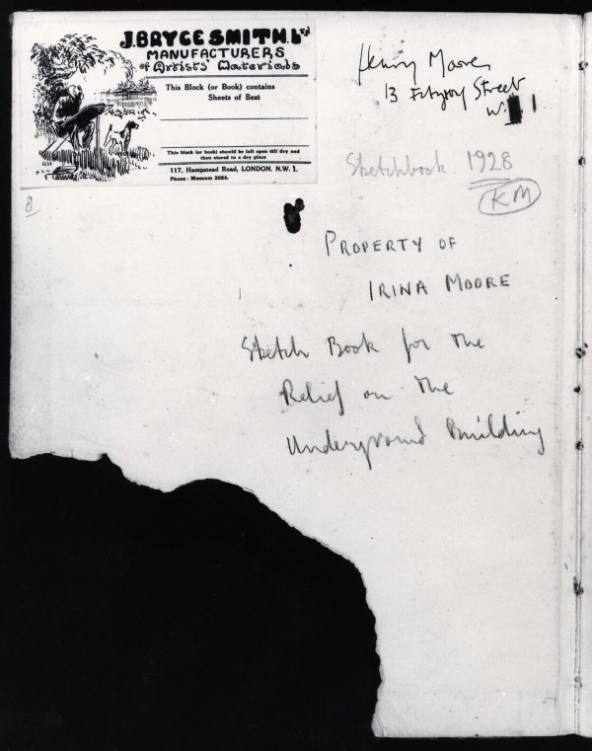 J. BRYCE SMITH. Ltd
MANUFACTURERS
of Artists' Materials
This Block (or Book) contains
Sheets of Best
This block (or book) should be left open till dry and
then stored in a dry place
117, Hampstead Road, LONDON, N.W.1.
Phone: Museum
Henry Moore
13 Fitzroy Street
W. 1
Sketchbook 1928
KM
8
PROPERTY OF
IRINA MOORE
Sketch Book for the
Relief on the
Underground Building